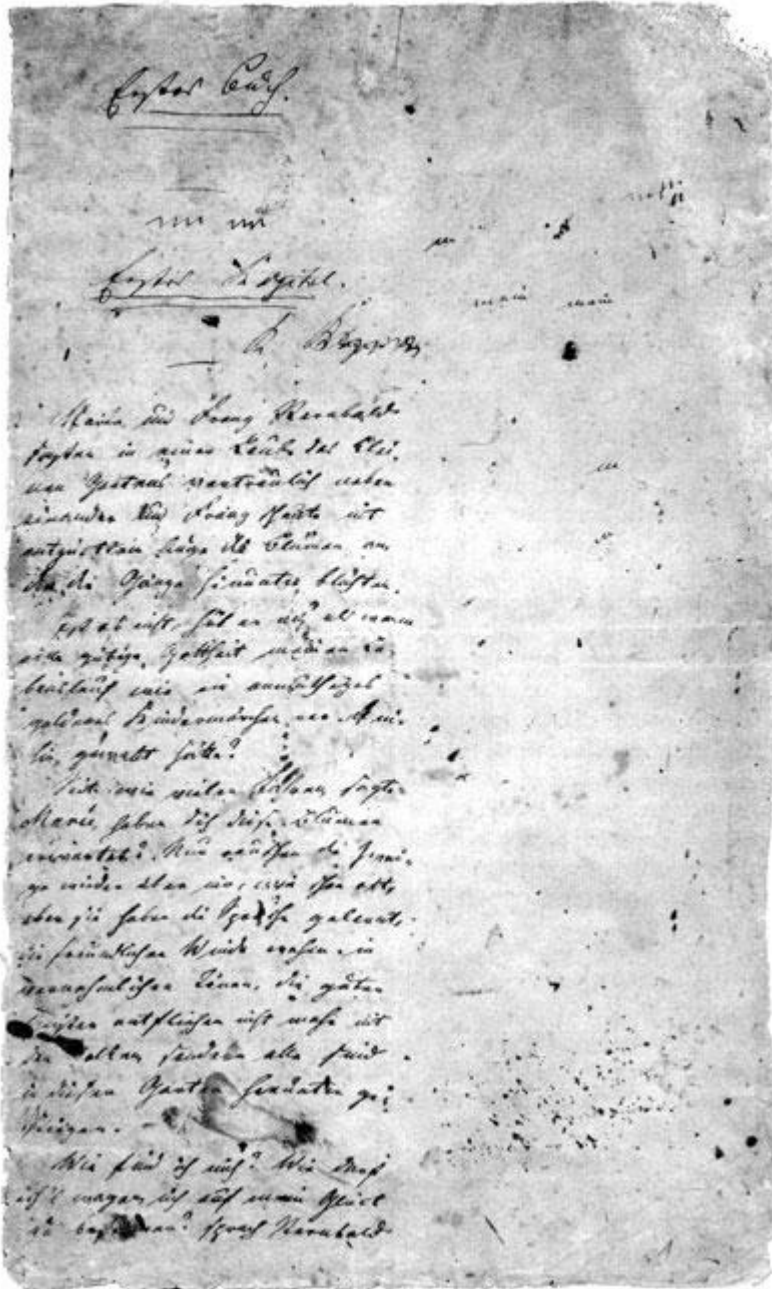 Erstes Buch.
Erstes Kapitel.
mein mein
Marie und Franz Sternbald
saßen in einer Laube des klei-
nen Gartens vertraulich neben
einander und Franz schaute mit
entzücktem Auge die Blumen an
die die Gänge hinunter blühten.
Ist es nicht, hub er an, als wenn
eine gütige Gottheit meinen
Lebenslauf wie ein anmuthiges
goldenes Kindermärchen
gewebt hätte?
Seit wie vielen Jahren, sagte
Marie, haben dich diese Blumen
erwartet? Nun rauschen die Zwei-
ge wieder über uns, wie ehe
aber sie haben die Sprache gelernt,
die freundlichen Winde wehen in
vernehmlichen Tönen, die guten
Geister entfliehen nicht mehr mit
den Wolken sondern alle sind
in diesen Garten herunter ge-
stiegen. –
Wie find ich mich? Wie darf
ich's wagen mich auf mein Glück
zu besinnen? sprach Sternbald